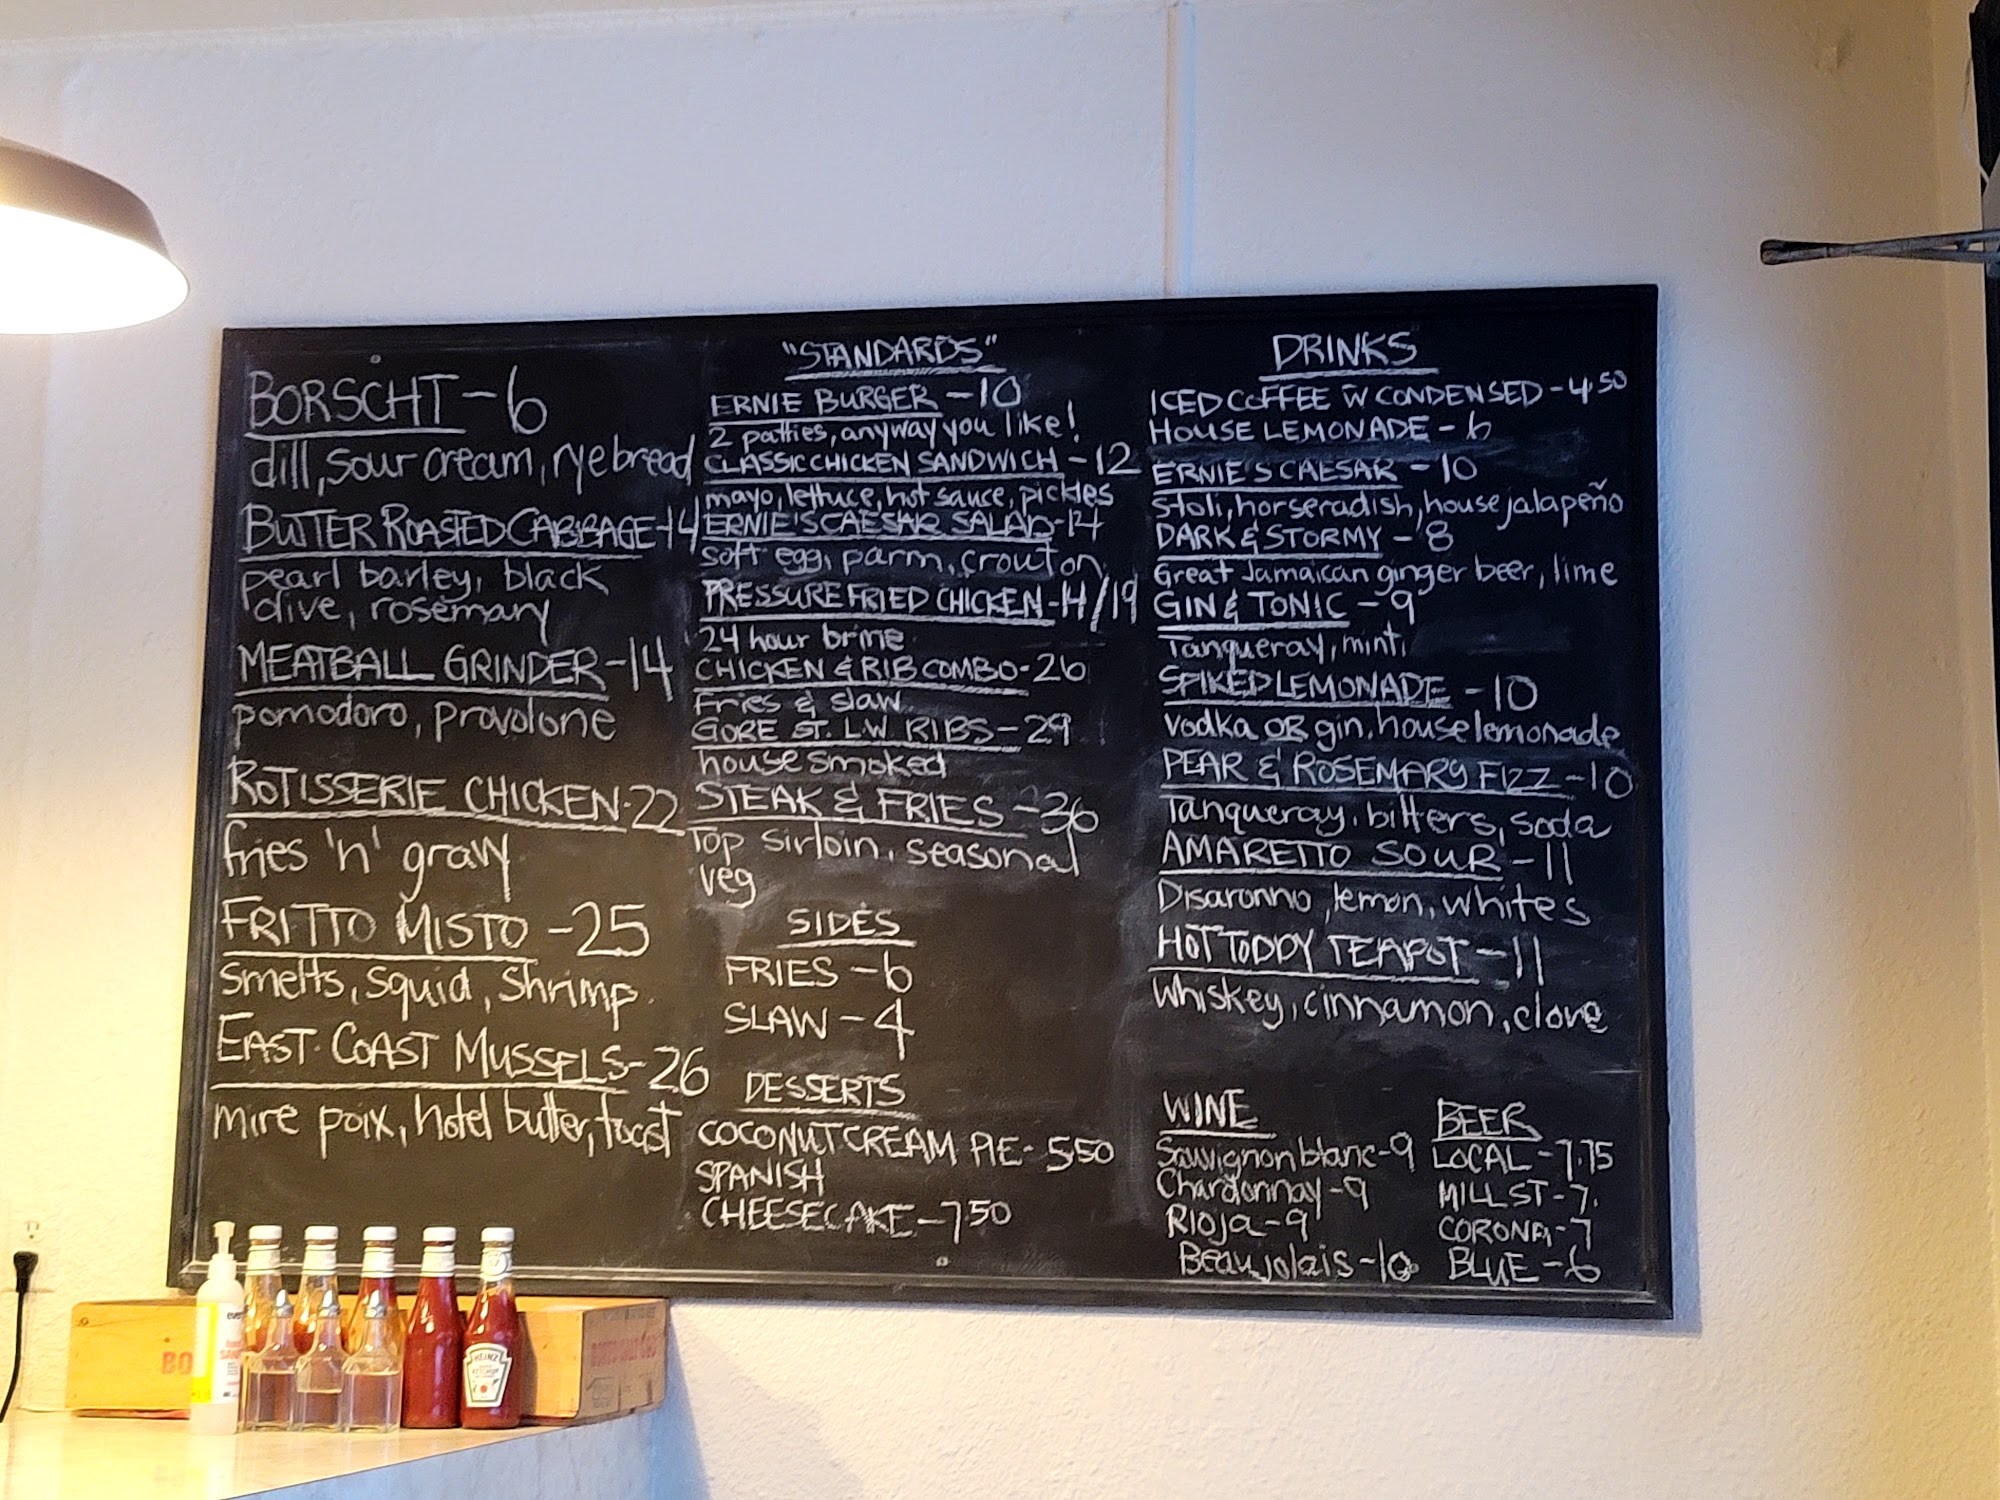 BORSCHT - 6
dill, sour cream, rye bread
BUTTER ROASTED CABBAGE - 14
pearl barley, black
olive, rosemary
MEATBALL GRINDER - 14
pomodoro, provolone
ROTISSERIE CHICKEN - 22
fries 'n' gravy
FRITTO MISTO - 25
smelts, squid, shrimp.
EAST COAST MUSSELS - 26
mire poix, hotel butter, toast
"STANDARDS"
ERNIE BURGER - 10
2 patties, anyway you like!
CLASSIC CHICKEN SANDWICH - 12
mayo, lettuce, hot sauce, pickles
ERNIE'S CAESAR SALAD - 14
soft egg, parm, crouton
PRESSURE FRIED CHICKEN - 14/19
24 hour brine
CHICKEN & RIB COMBO - 26
Fries & slaw
GORE ST. L.W RIBS - 29
house smoked
STEAK & FRIES - 36
Top sirloin, seasonal
veg
SIDES
FRIES - 6
SLAW - 4
DESSERTS
COCONUT CREAM PIE - 5.50
SPANISH
CHEESECAKE - 7.50
DRINKS
ICED COFFEE W CONDENSED - 4.50
HOUSE LEMONADE - 6
ERNIE'S CAESAR - 10
Stoli, horseradish, house jalapeño
DARK & STORMY - 8
Great Jamaican ginger beer, lime
GIN & TONIC - 9
Tanqueray, mint,
SPIKED LEMONADE - 10
vodka OR gin, house lemonade
PEAR & ROSEMARY FIZZ - 10
Tanqueray, bitters, soda
AMARETTO SOUR - 11
Disaronno, lemon, whites
HOT TODDY TEAPOT - 11
whiskey, cinnamon, clove
WINE
Sauvignon blanc - 9
Chardonnay - 9
Rioja - 9
Beaujolais - 10
BEER
LOCAL - 7.75
MILL ST - 7.
CORONA - 7
BLUE - 6
HEINZ
KETCHUP
BO